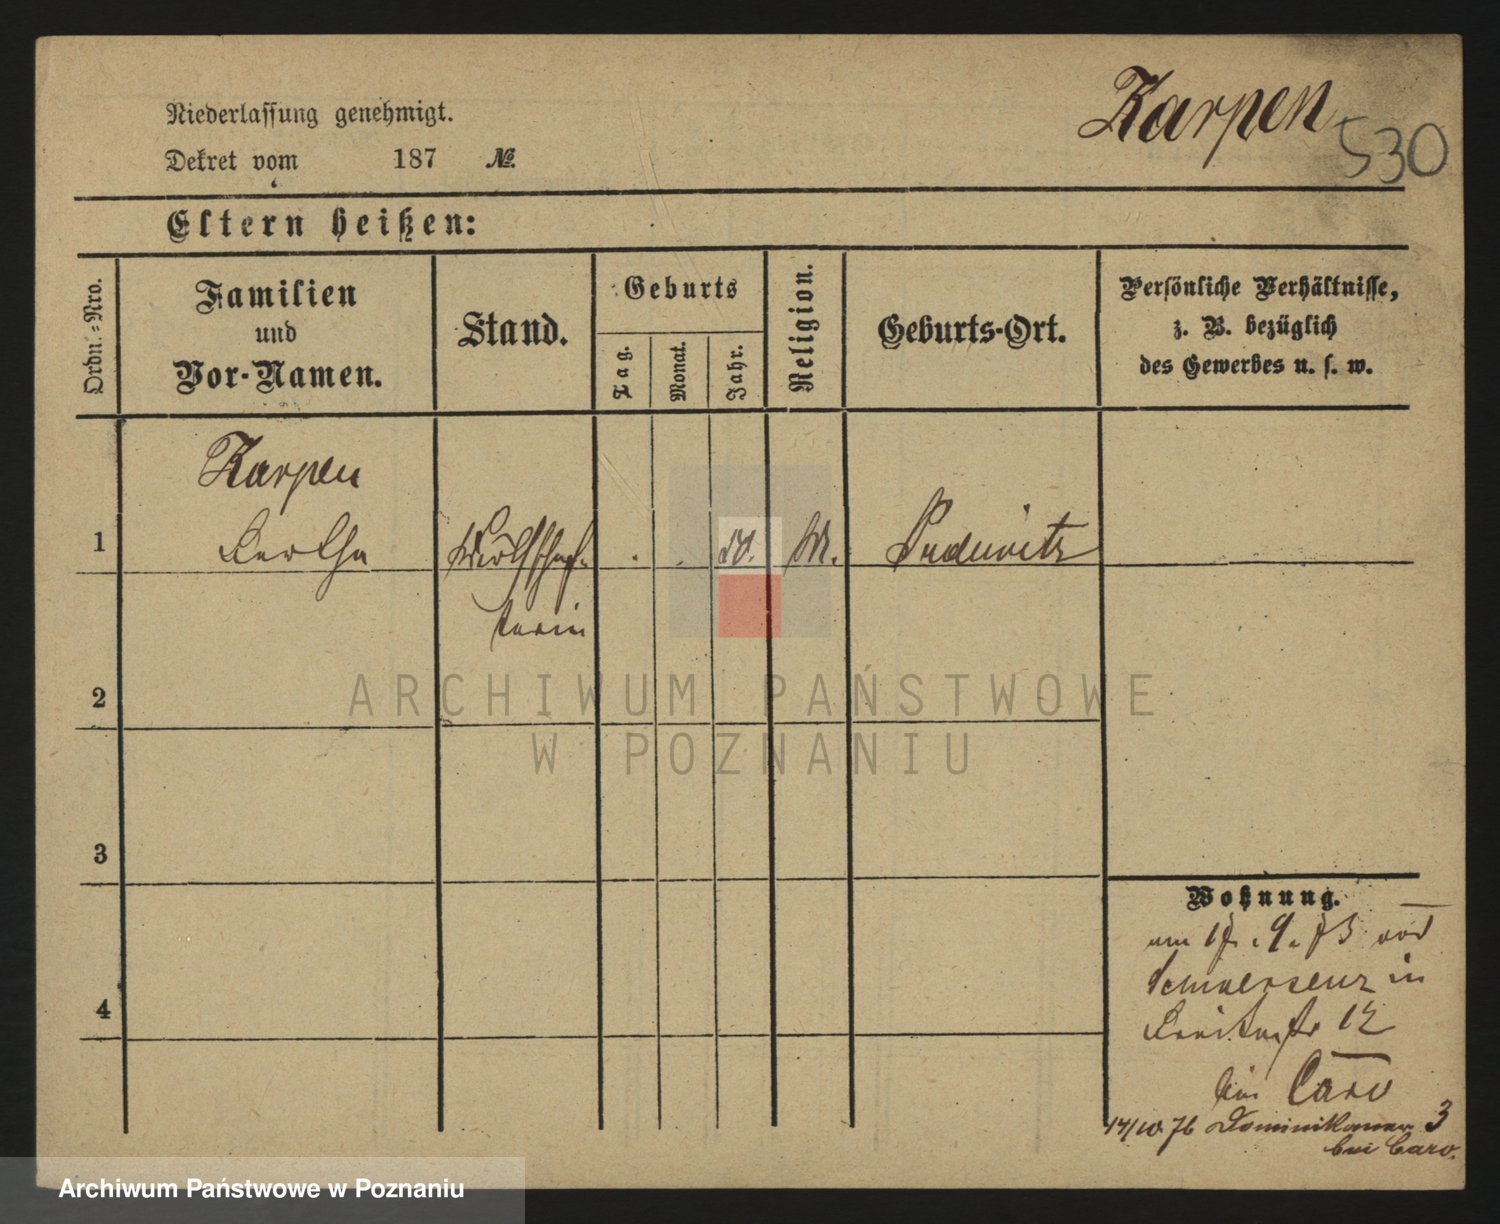 Karpen
530
Niederlassung genehmigt.
Dekret vom 187 №.
Eltern heißen:
Ordn.-Nro.
Familien
und
Vor-Namen.
Stand.
Geburts
Tag.
Monat.
Jahr.
Religion.
Geburts-Ort.
Persönliche Verhältnisse,
z. B. bezüglich
des Gewerbes u. s. w.
Karpen
1 Bertha Wirthschaf- M. Pudewitz
terin
2
3
4
Wohnung.
am 17. 9. 73 von
Schwersenz in
Breitestr 12
bei Caro
14/10 76 Dominikaner 3
bei Caro.
ARCHIWUM PAŃSTWOWE
W POZNANIU
Archiwum Państwowe w Poznaniu